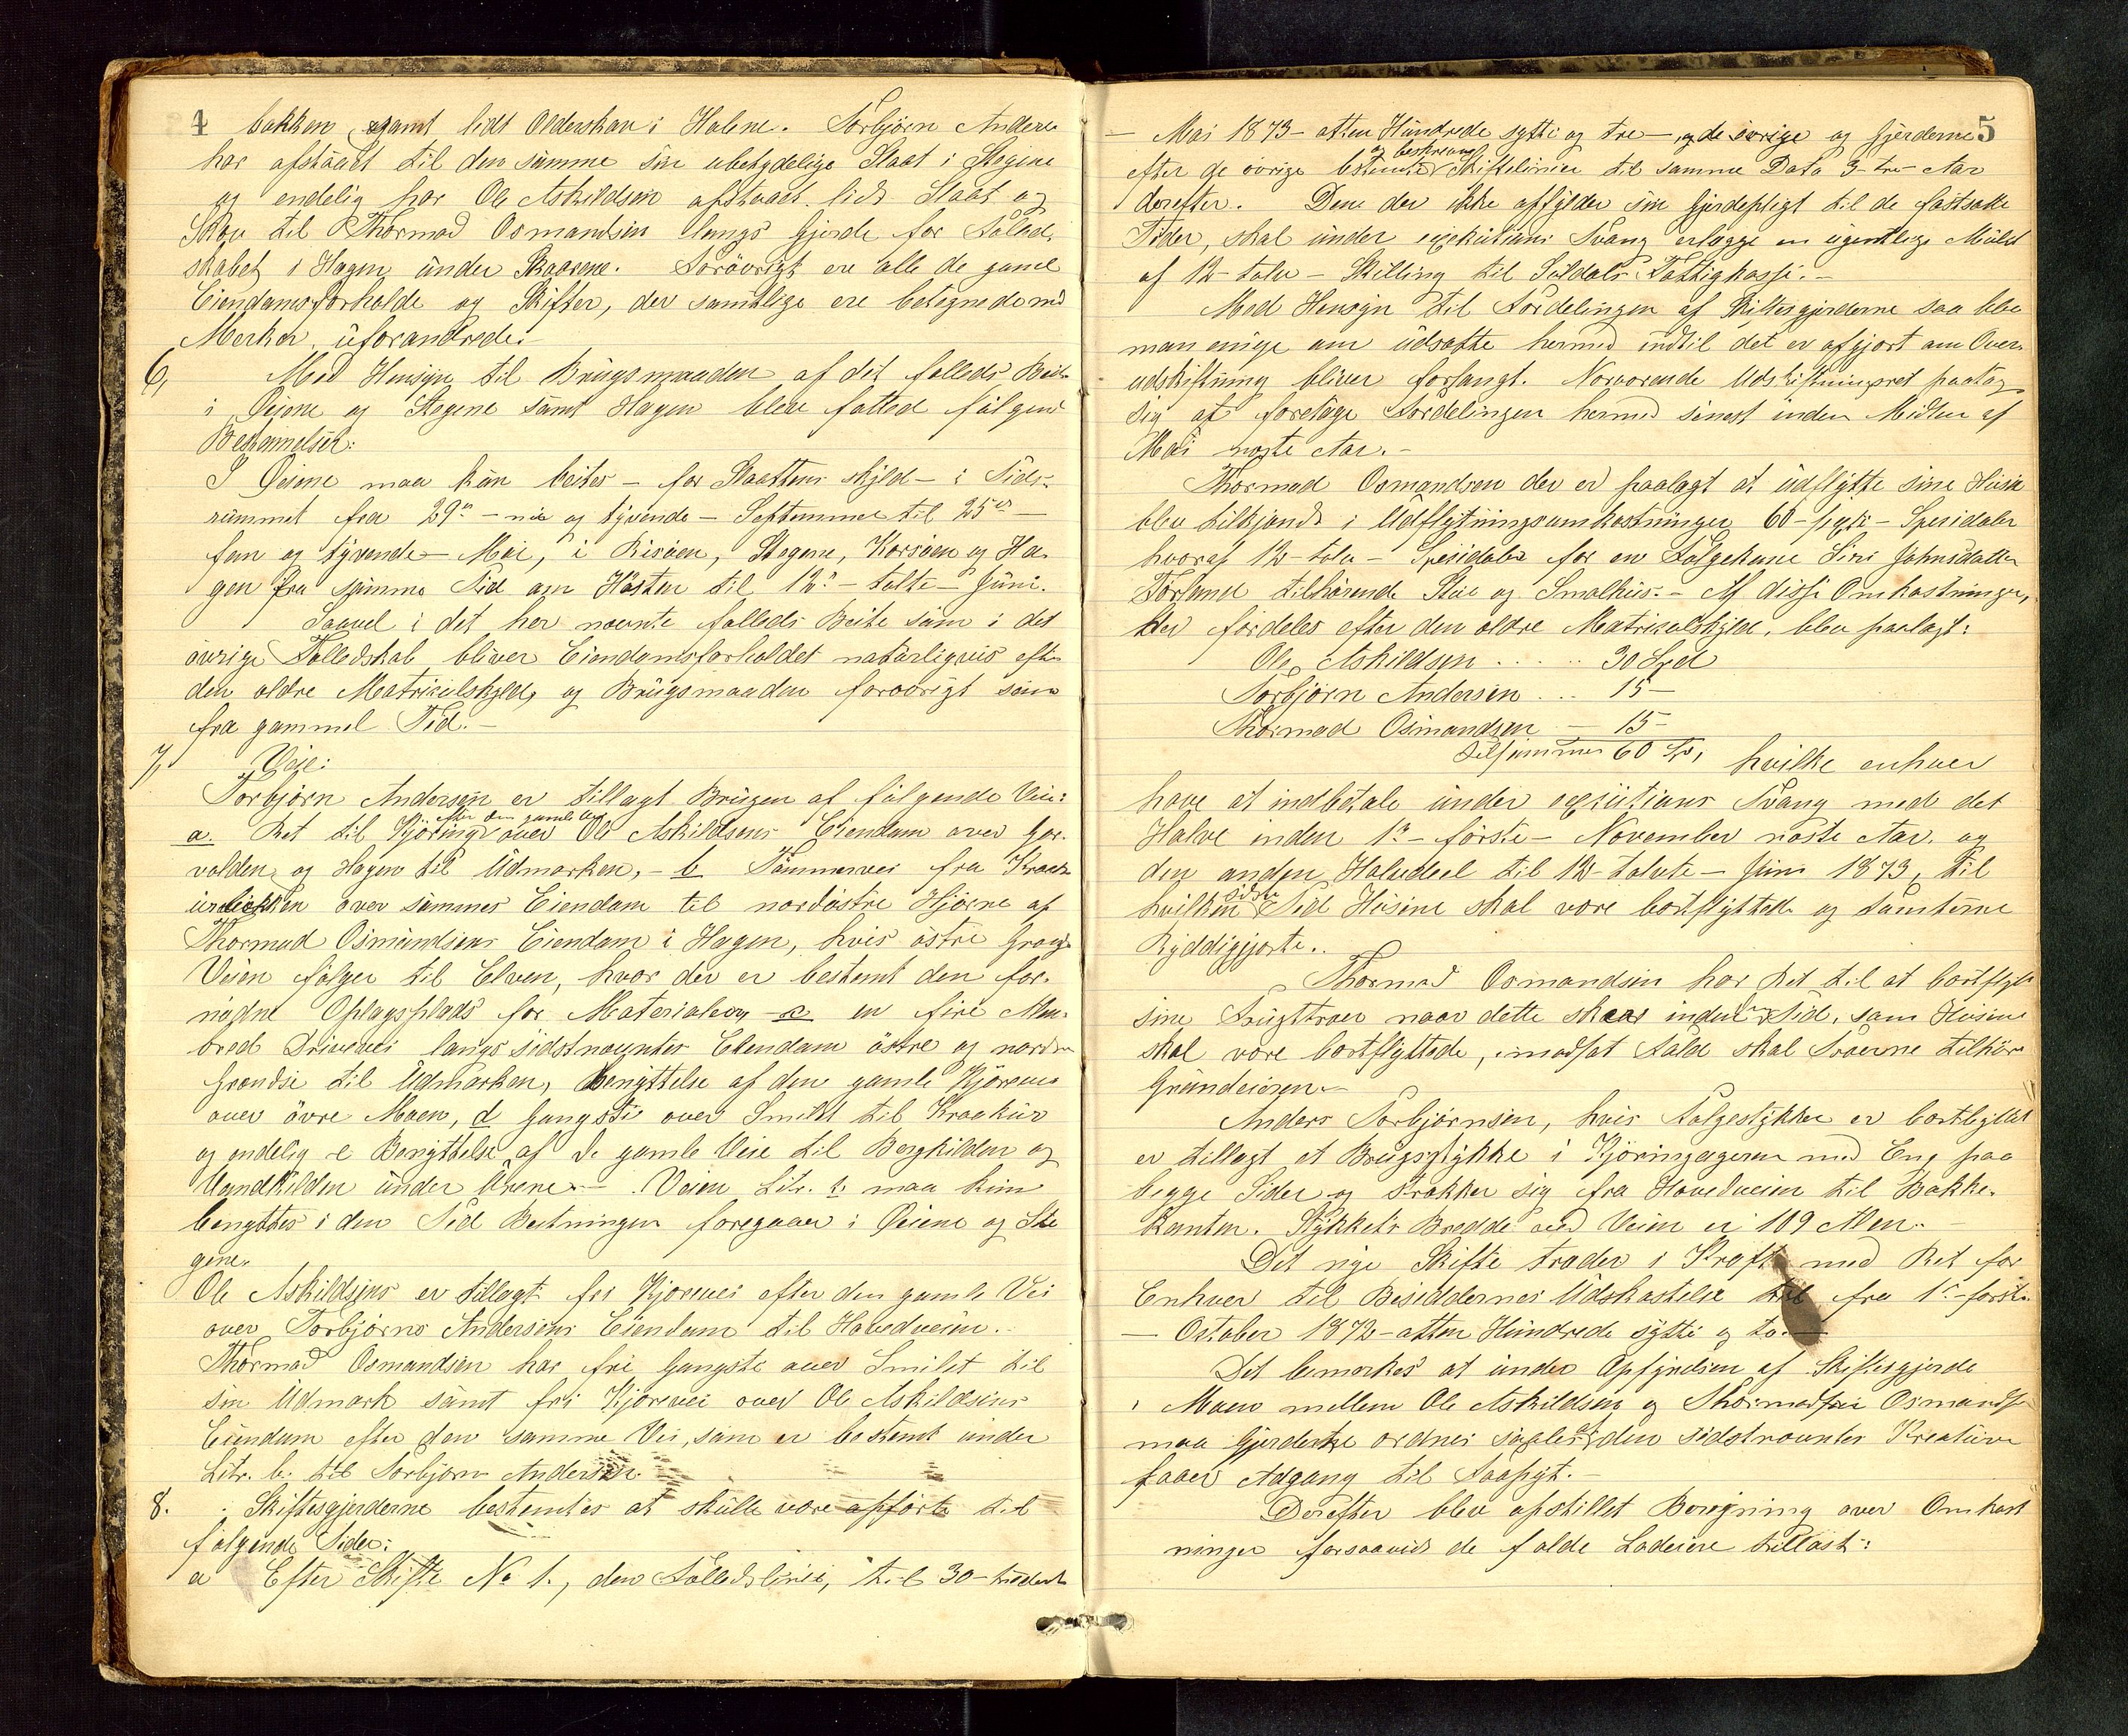 4 bakken, samt lidt Olderskav i Halene. Torbjørn Anderss.
har afstaaet til den samme sin ubetydelige Slaat i Stegene
og endelig har Ole Askildsen afstaaet lidt Slaat og
Skov til Thormod Osmundsen langs Gjerde for Fælled-
skabet i Hagen under Skaarene. Forøvrigt ere alle de gamle
Eiendomsforholde og Skifter, der samtlige ere betegnede med
Merker, uforandrede.
6, Med Hensyn til Brugsmaaden af det fælleds Beite
i Øiene og Stegene samt Hagen blev fattede følgende
Bestemmelser:
I Øiene maa kun beites – for Slaattens skyld – i Tids-
rummet fra 29de – ni og tyvende – September til 25de –
fem og tyvende – Mai, i Risøen, Stegene, Korsøen og Ha-
gen fra samme Tid om Høsten til 12te – tolvte – Juni.
Saavel i det her nævnte fælleds Beite som i det
øvrige Fælledskab bliver Eiendomsforholdet naturligvis efter
den ældre Matrikulskyld, og Brugsmaaden forøvrigt som
fra gammel Tid. –
7, Veie:
Torbjørn Andersen er tillagt Brugen af følgende Veie:
efter den gamle Vei
a. Ret til Kjøring over Ole Askildsens Eiendom over Gar-
valden og Hagen til Udmarken, – b Tømmervei fra Kraak-
urbakken over sammes Eiendom til nordøstre Hjørne af
Thormod Osmundsens Eiendom i Hagen, hvis østre Grændse
Veien følger til Elven, hvor der er bestemt den for-
nødne Oplagsplads for Materialier – c en fire Alen
bred Driftevei langs sidstnævntes Eiendoms østre og nordre
Grændse til Udmarken, Benyttelse af den gamle Kjørevei
over øvre Moen, d Gangsti over Smilit til Kraakur
og endelig e Benyttelse af de gamle Veie til Bergkilden og
Vandkilden under Aarene. – Veien Litr. b maa kun
benyttes i den Tid Beitningen foregaaer i Øiene og Ste
gene.
Ole Askildsens er tillagt fri Kjørevei efter den gamle Vei
over Torbjørns Andersens Eiendom til Hovedveien.
Thormod Osmundsen har fri Gangsti over Smilit til
sin Udmark samt fri Kjørevei over Ole Askildsens
Eiendom efter den samme Vei, som er bestemt under
Litr. b. til Torbjørn Andersen.
8. Skiftesgjerderne bestemtes at skulle være opførte til
følgende Tider:
a Efter Skifte No 1., den Fælledslinie, til 30 – tredivte
5
– Mai 1873 – atten Hundrede sytti og tre – og de øvrige og Gjerderne
og beskrevne
efter de øvrige bestemte Skiftelinier til samme Dato 3 – tre – Aar
derefter. Den der ikke opfylder sin Gjerdepligt til de fastsatte
Tider, skal under exekutions Tvang erlægge en ugentlige Mulct
af 12 – tolv – Skilling til Suldals Fattigkasse. –
Med Hensyn til Fordelingen af Skiftesgjerderne saa blev
man enige om udsætte hermed indtil det er afgjort om Over-
udskiftning bliver forlangt. Nærværende Udskiftningsret paatog
sig at foretage Fordelingen hermed senest inden Midten af
Mai næste Aar. –
Thormod Osmundsen der er paalagt at udflytte sine Huse
blev tilkjendt i Udflytningsomkostninger 60 – sexti – Spesidaler
hvoraf 12 – tolv – Spesidaler for en Følgekone Siri Johnsdatter
Førland tilhørende Stue og Smalhus. – Af disse Omkostninger,
der fordeles efter den ældre Matrikulskyld, blev paalagt:
Ole Askildsen . . . . . 30 Spd
Torbjørn Andersen . . . 15 –
Thormod Osmundsen – 15 –
Tilsammen 60 Sp., hvilke enhver
have at indbetale under exekutions Tvang med det
Halve inden 1ste – første – November næste Aar, og
den anden Halvdeel til 12 – tolvte – Juni 1873, til
sidste
hvilken Tid Husene skal være bortflyttede og Tomterne
Ryddiggjorte.
Thormod Osmundsen har Ret til at bortflytte
sine Frugttræer naar dette skeer inden den Tid, som Husene
skal være bortflyttede, i modsat Fald skal Træerne tilhøre
Grundeieren. –
Anders Torbjørnsen, hvis Følgestykke er bortbyttet
er tillagt et Brugsstykke i Kjøringageren med Eng paa
begge Sider og strækker sig fra Hovedveien til Bakke-
kanten. Stykkets Bredde ved Veien er 109 Alen. –
Det nye Skifte træder i Kraft med Ret for
Enhver til Besiddernes Udskastelse til fra 1ste – første
– October 1872 – atten Hundrede sytti og to. –
Det bemærkes at under Opførelsen af Skiftesgjerde
i Moen mellem Ole Askildsen og Thormod Osmunds.
maa Gjerderne ordnes saaledes at den sidstnævntes Kreature
faaer Adgang til Aasyt. –
Derefter blev opstillet Beregning over Omkost
ninger forsaavidt de falde Lodeiere tillast: